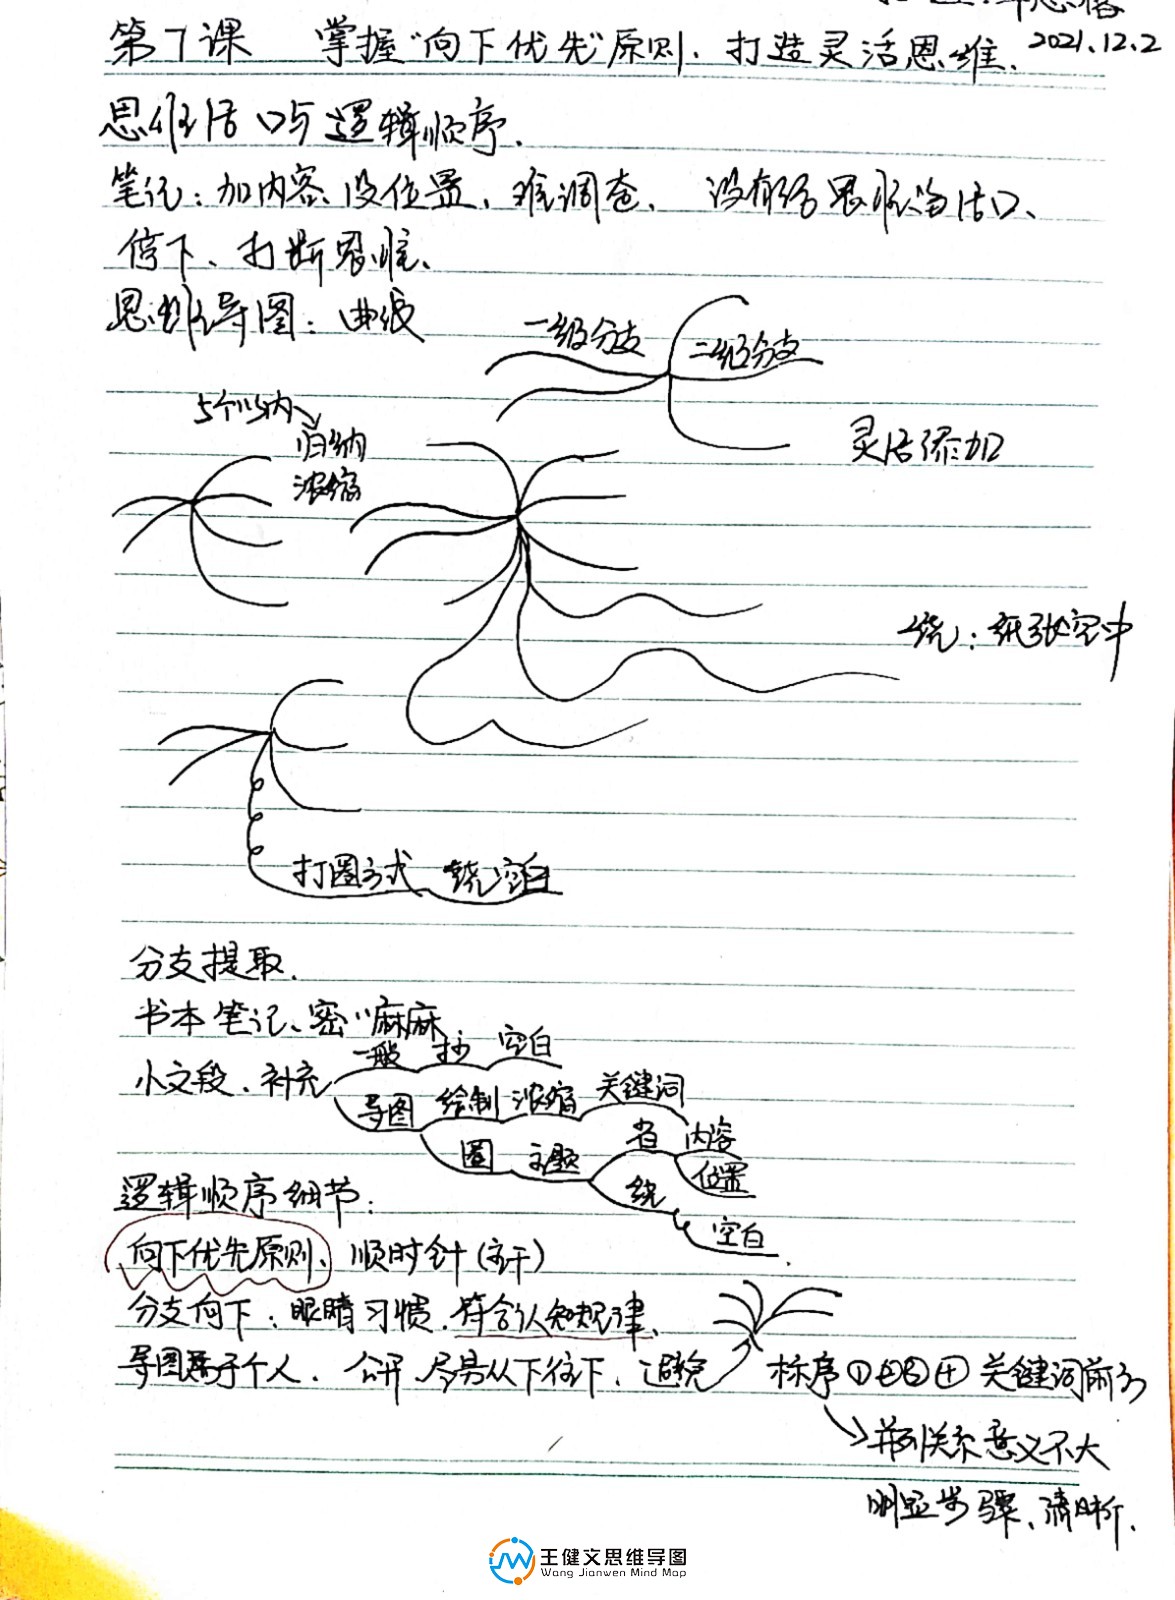 第7课 掌握“向下优先”原则.打造灵活思维. 2021.12.2
思维活口与逻辑顺序.
笔记:加内容没位置、难调查、没有给思维留活口、
停下、打断思维、
思维导图:曲线
一级分支 二级分支
5个以内
归纳
浓缩
灵活添加
绕:纸张空中
打圈方式 绕空白
分支提取.
书本笔记、密 麻麻
一般 抄 空白
小文段、补充
导图 绘制 浓缩 关键词
圈 主题 省 内容
位置
绕
空白
逻辑顺序细节:
向下优先原则、顺时针
分支向下:眼睛习惯.符合认知规律、
导图 于个人、公开 尽易从下往下、避免
标序①②③④ 关键词前
并列关系意义不大
明显步骤、清晰.
王健文思维导图
Wang Jianwen Mind Map